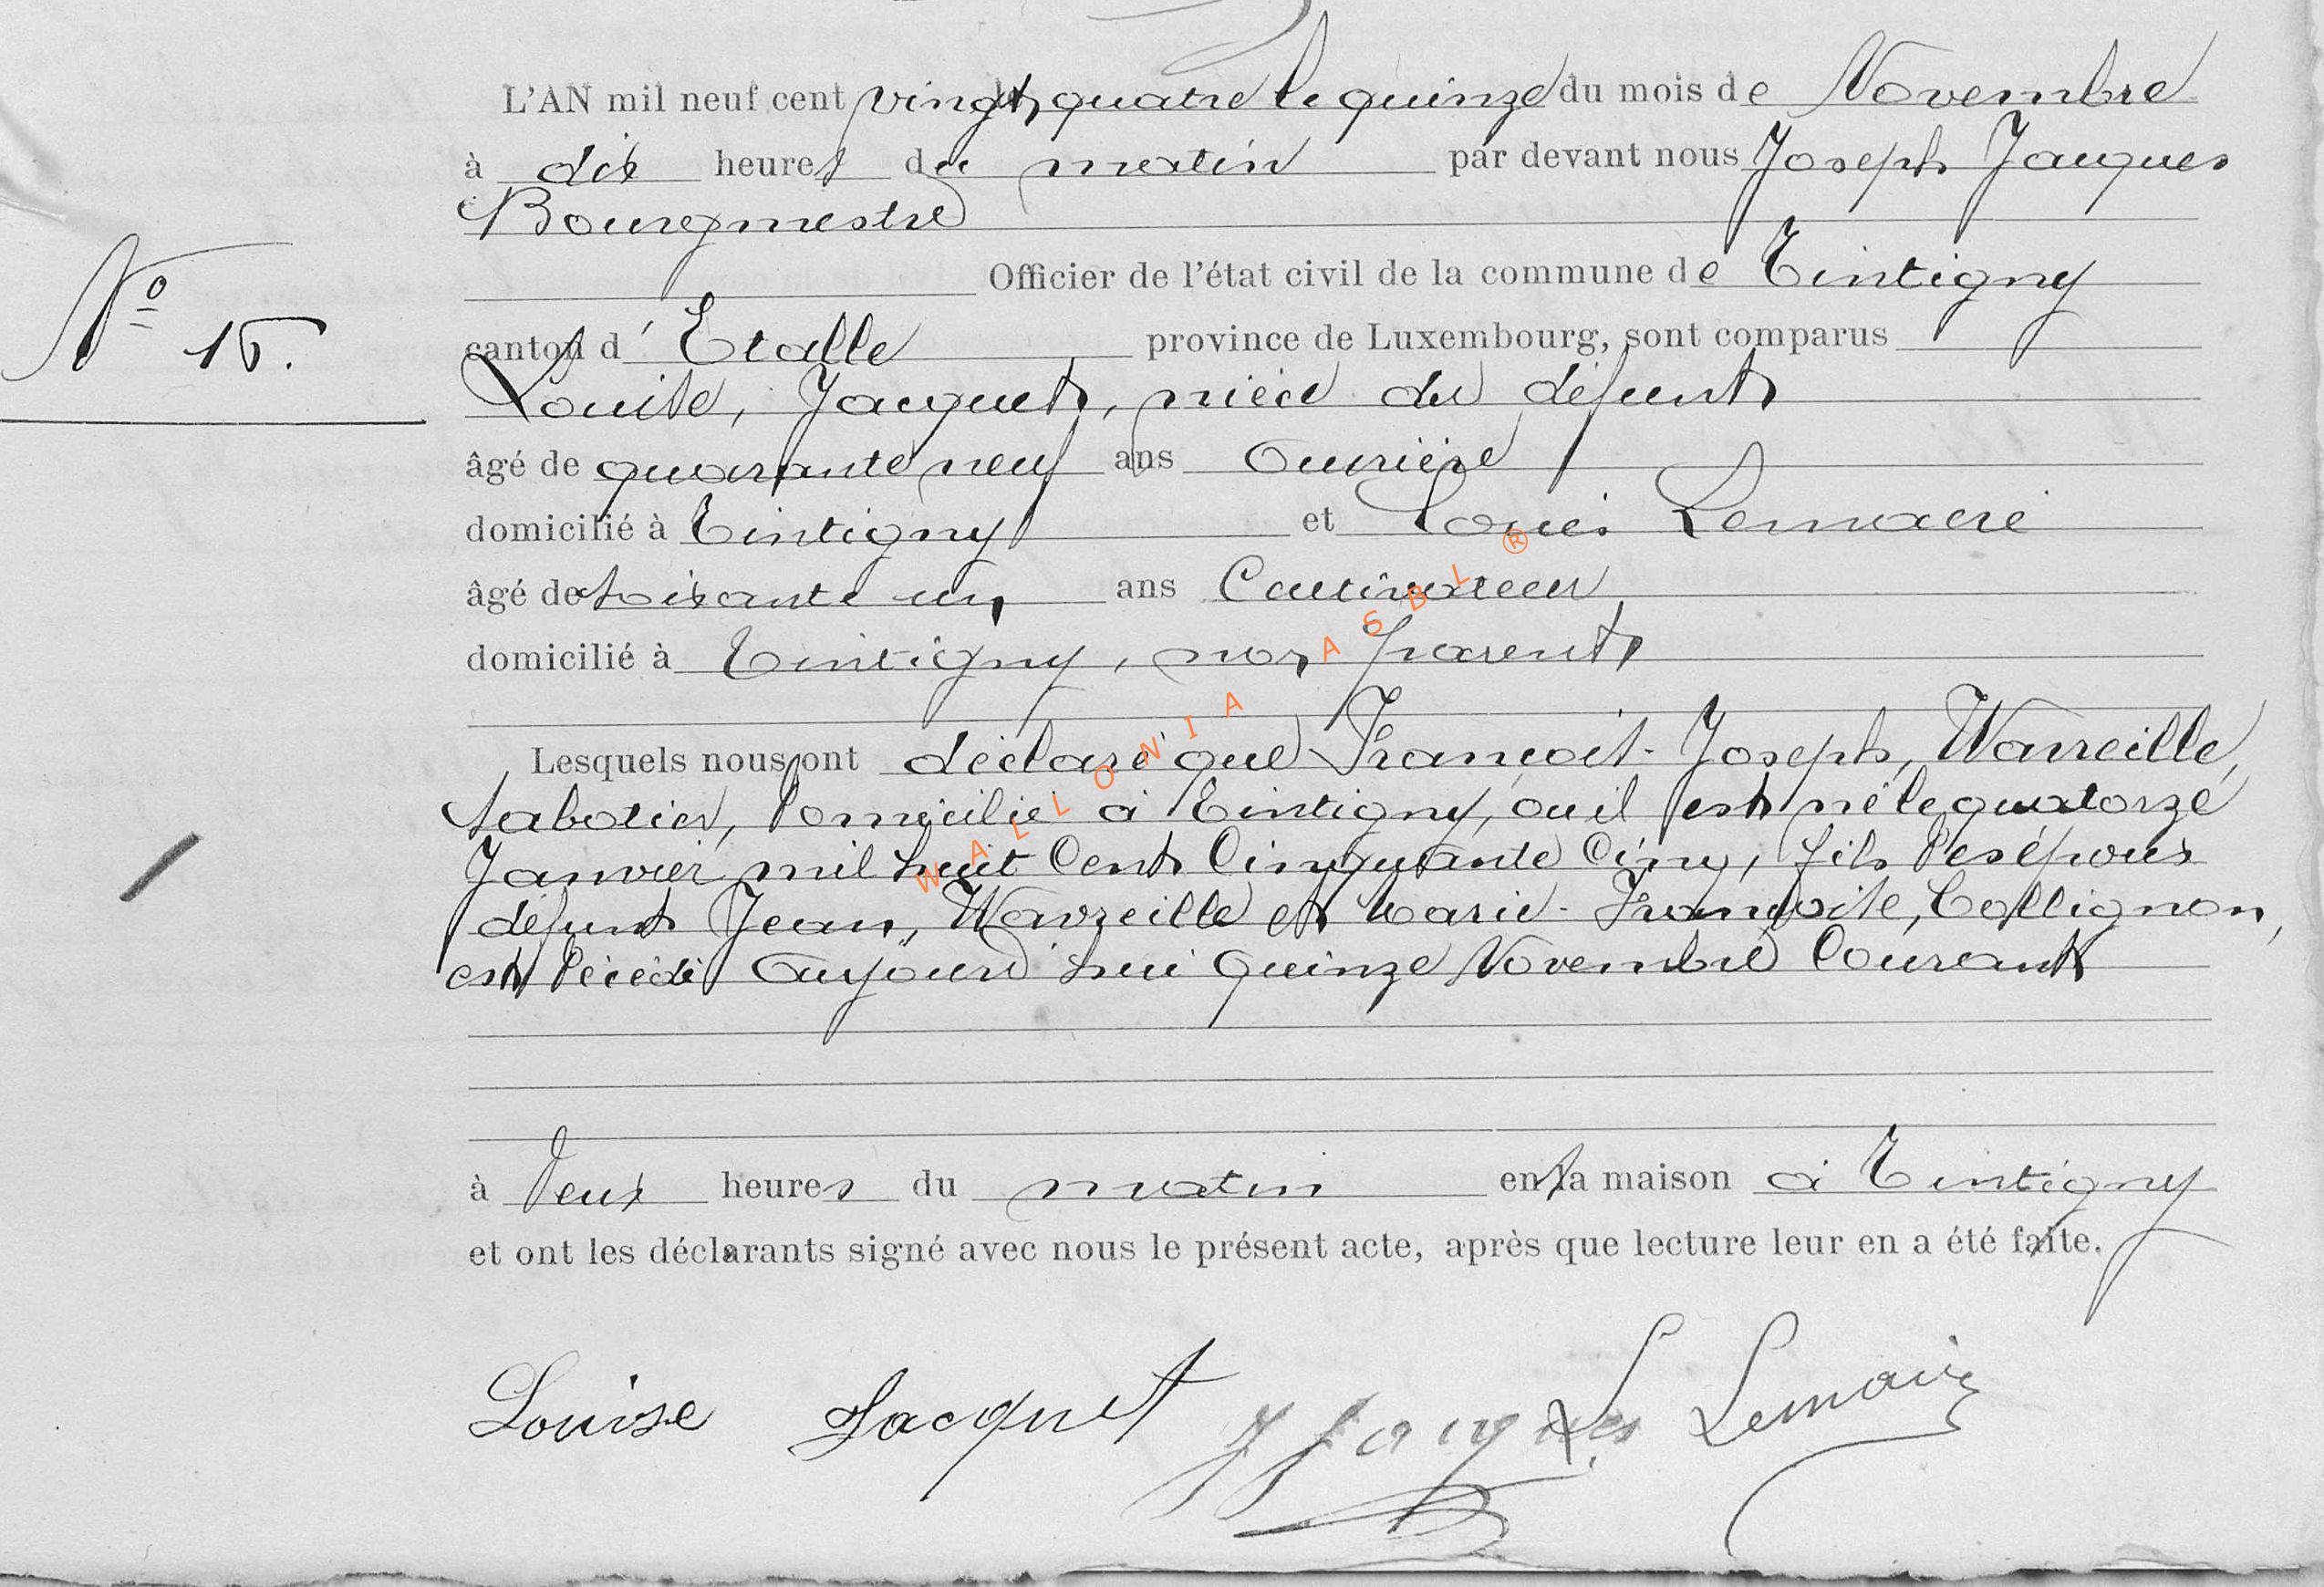 L'AN mil neuf cent vingt quatre le quinze du mois de Novembre
à dix heures du matin par devant nous Joseph Jacques
Bourgmestre
Officier de l'état civil de la commune de Tintigny
N° 15.
canton d' Etalle province de Luxembourg, sont comparus
Louise, Jacquet, nièce du défunt
âgé de quarante neuf ans ouvrière
domicilié à Tintigny et Louis Lemaire
âgé de soixante un ans Cultivateur
domicilié à Tintigny, non parent
Lesquels nous ont déclaré que François-Joseph, Wavreille,
sabotier, domicilié à Tintigny, ou il est né le quatorze
Janvier mil huit Cent Cinquante Cinq, fils des époux
défunt Jean, Wavreille et Marie-Françoise, Collignon,
est décédé aujourd'hui quinze Novembre Courant
à deux heures du matin en sa maison à Tintigny
et ont les déclarants signé avec nous le présent acte, après que lecture leur en a été faite.
Louise Jacquet J Jacques L. Lemaire
WALLONIA ASBL ®